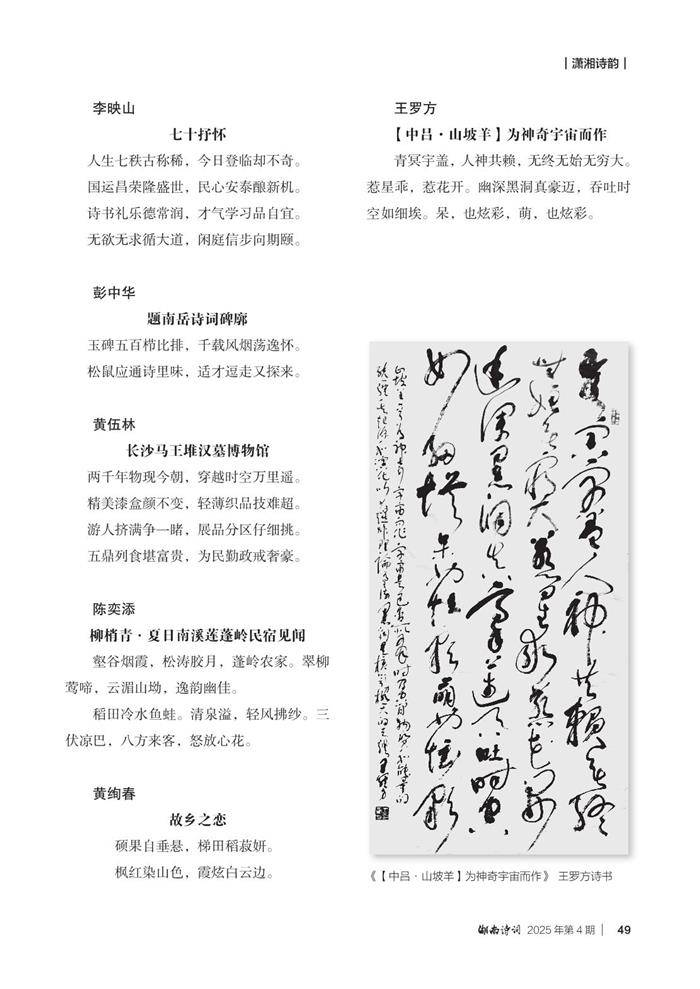 |潇湘诗韵|
李映山
七十抒怀
人生七秩古称稀，今日登临却不奇。
国运昌荣隆盛世，民心安泰酿新机。
诗书礼乐德常润，才气学习品自宜。
无欲无求循大道，闲庭信步向期颐。
彭中华
题南岳诗词碑廊
玉碑五百栉比排，千载风烟荡逸怀。
松鼠应通诗里味，适才逗走又探来。
黄伍林
长沙马王堆汉墓博物馆
两千年物现今朝，穿越时空万里遥。
精美漆盒颜不变，轻薄织品技难超。
游人挤满争一睹，展品分区仔细挑。
五鼎列食堪富贵，为民勤政戒奢豪。
陈奕添
柳梢青·夏日南溪莲蓬岭民宿见闻
壑谷烟霞，松涛胶月，蓬岭农家。翠柳
莺啼，云湄山坳，逸韵幽佳。
稻田冷水鱼蛙。清泉溢，轻风拂纱。三
伏凉巴，八方来客，怒放心花。
黄绚春
故乡之恋
硕果自垂悬，梯田稻菽妍。
枫红染山色，霞炫白云边。
王罗方
【中吕·山坡羊】为神奇宇宙而作
青冥宇盖，人神共赖，无终无始无穷大。
惹星乖，惹花开。幽深黑洞真豪迈，吞吐时
空如细埃。呆，也炫彩，萌，也炫彩。
《【中吕·山坡羊】为神奇宇宙而作》 王罗方诗书
湖南诗词 2025年第4期| 49